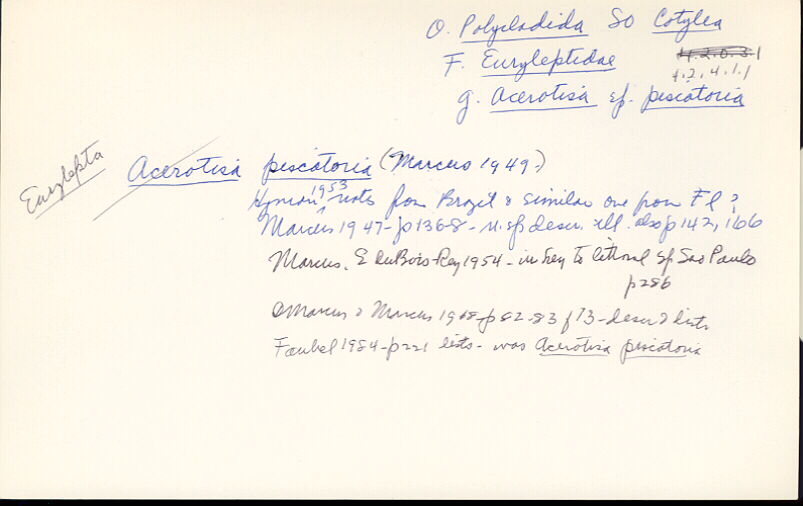 O. Polycladida SO Cotylea
F. Euryleptidae 4.2.0.3.1
4.2.4.1.1
g. Acerotisa sp. piscatoria
Eurylepta Acerotisa piscatoria (Marcus 1949?)
Hyman 1953 notes from Brazil & similar one from Fl?
Marcus 1947-p136-8- n. sp descr. ill. also p142, 166
Marcus, E duBois-Rey 1954 - in key to littoral sp Sao Paulo
p286
Marcus & Marcus 1968-p82-83 f73-descr & lists
Faubel 1984-p221 lists- was Acerotisa piscatoria